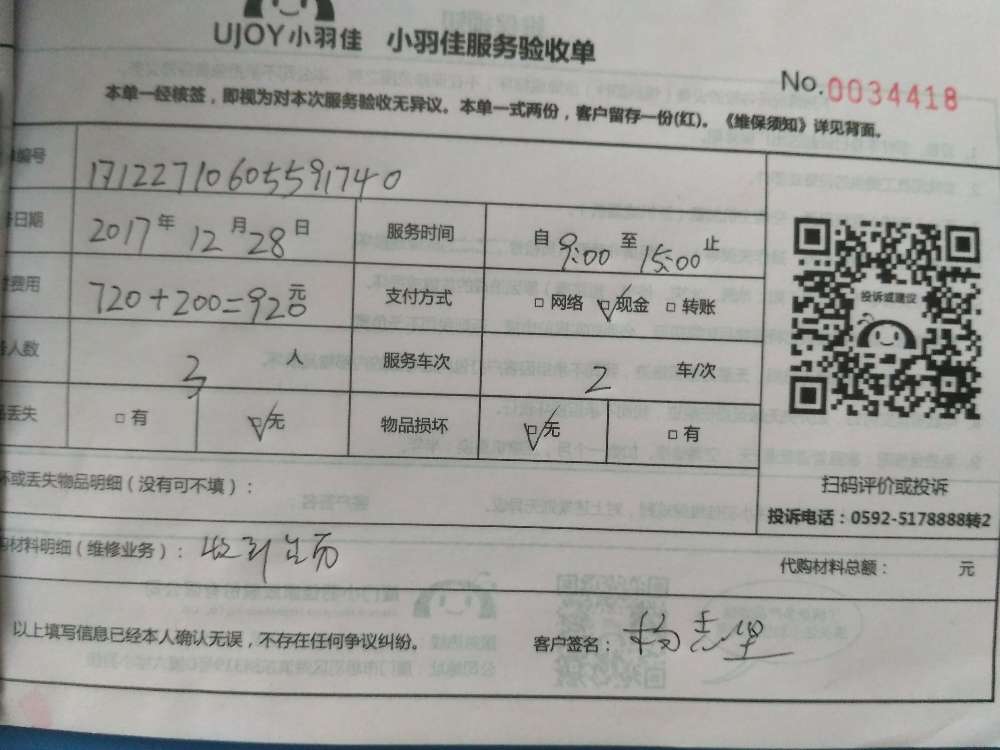 UJOY小羽佳 小羽佳服务验收单
No.0034418
本单一经核签，即视为对本次服务验收无异议。本单一式两份，客户留存一份(红)。《维保须知》详见背面。
编号 17122710605591740
日期 2017年12月28日 服务时间 自9:00至15:00止
费用 720+200=920元 支付方式 □网络 □现金 □转账
人数 3人 服务车次 2 车/次
丢失 □有 □无 物品损坏 □无 □有
投诉或建议
扫码评价或投诉
投诉电话：0592-5178888转2
坏或丢失物品明细（没有可不填）：
材料明细（维修业务）： 代购材料总额： 元
以上填写信息已经本人确认无误，不存在任何争议纠纷。 客户签名：杨志坚